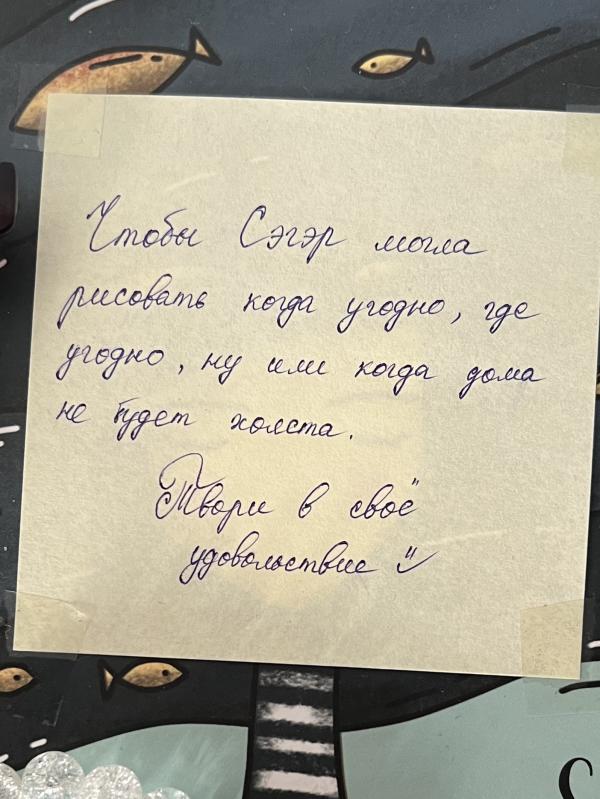 Чтобы Сэгэр могла
рисовать когда угодно, где
угодно, ну или когда дома
не будет холста.
Твори в своё
удовольствие
S